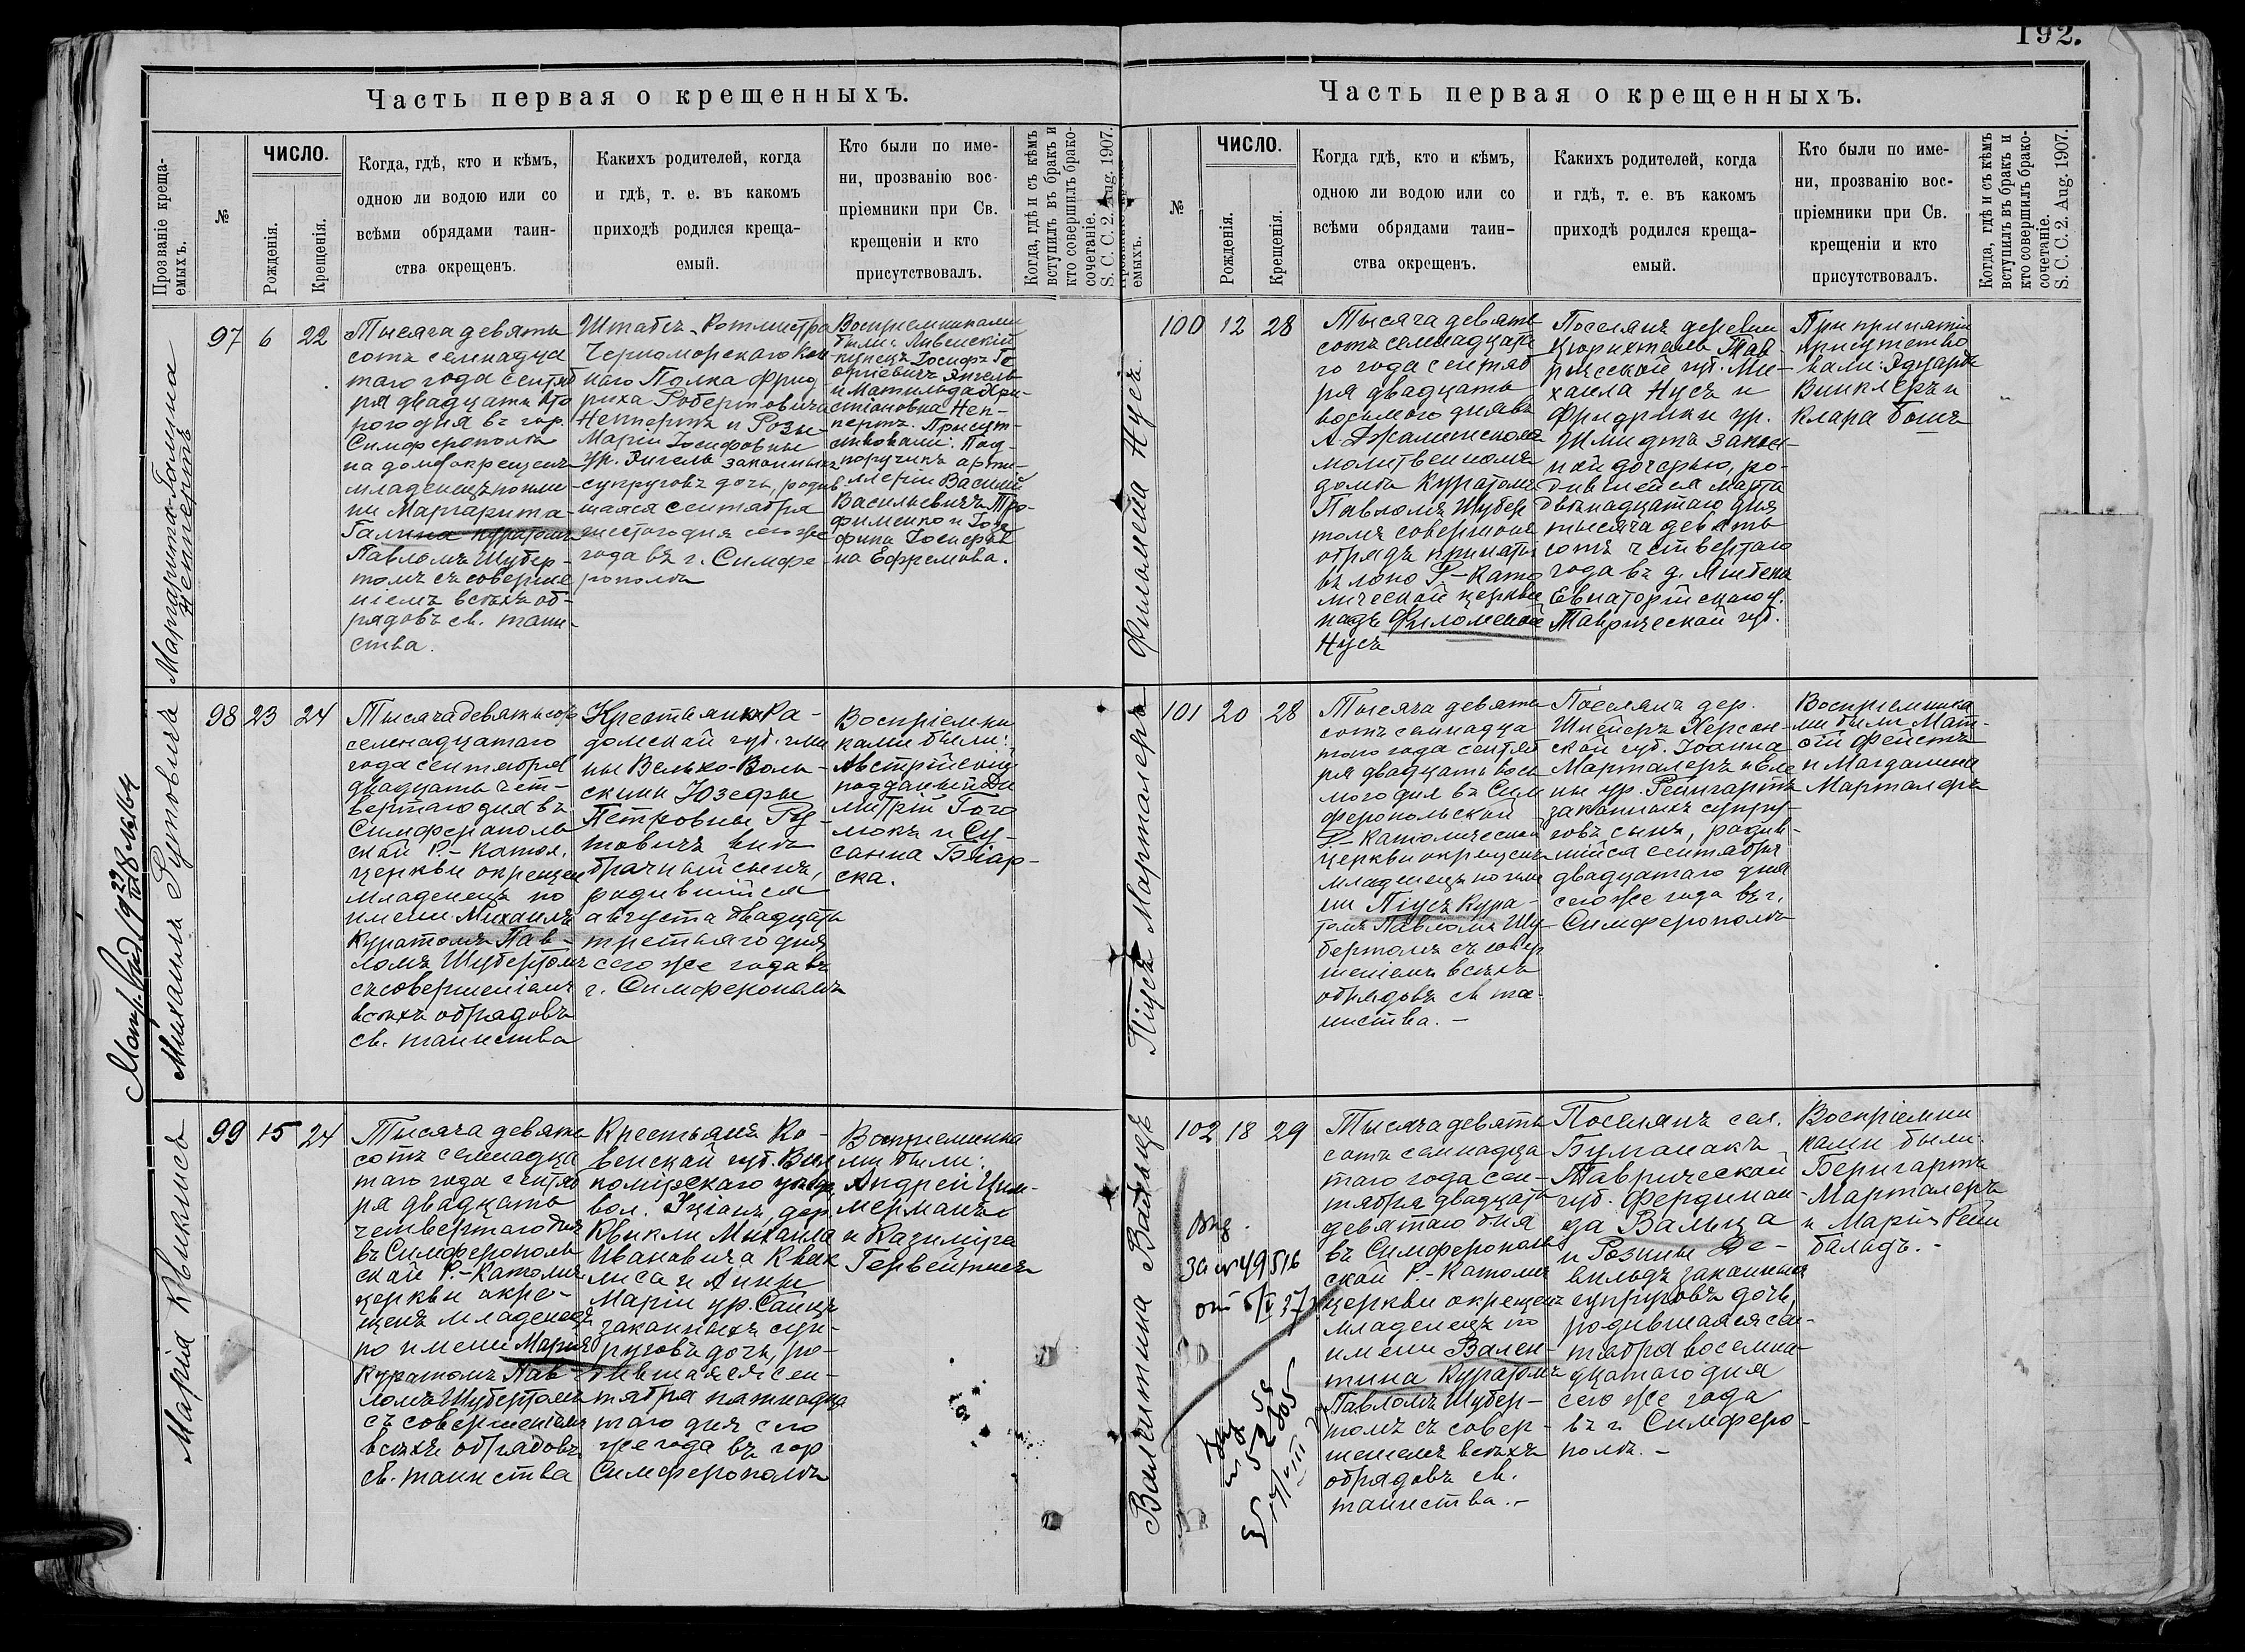 192.
Часть первая о крещенныхъ.
Прозваніе креща-
емыхъ.
№
ЧИСЛО.
Рожденія.
Крещенія.
Когда, гдѣ, кто и кѣмъ,
одною ли водою или со
всѣми обрядами таин-
ства окрещенъ.
Какихъ родителей, когда
и гдѣ, т. е. въ какомъ
приходѣ родился креща-
емый.
Кто были по име-
ни, прозванію вос-
пріемники при Св.
крещеніи и кто
присутствовалъ.
Когда, гдѣ и съ кѣмъ
вступилъ въ бракъ и
кто совершилъ брако-
сочетаніе.
S. C. C. 2. Aug. 1907.
Маргарита-Галина
Неппертъ
97 6 22
Тысяча девять
сотъ семнадца
таго года сентяб
ря двадцать вто
рого дня въ гор.
Симферополѣ
на дому окрещенъ
младенецъ по име-
ни Маргарита-
Галина куратомъ
Павломъ Шубер-
томъ съ соверше
ніемъ всѣхъ об-
рядовъ св. таин-
ства.
Штабсъ-Ротмистра
Черноморскаго Кон
наго Полка Фрид
риха Робертовича
Неппертъ и Розы-
Маріи Іосифовны
ур. Энгель законныхъ
супруговъ дочь, родив
шаяся сентября
шестого дня сего же
года въ г. Симфе
рополѣ
Воспріемниками
были: Ливенскій
купецъ Іосифъ Ге
оргіевичъ Энгель
и Матильда Хри-
стіановна Неп-
пертъ. Присут-
ствовали: Под-
поручикъ арти-
ллеріи Василій
Васильевичъ Тро-
фименко и Іозе
фина Іосифов
на Ефремова.
Михаилъ Рутовичъ
98 23 24
Тысяча девятьсотъ
семнадцатаго
года сентября
двадцать чет-
вертаго дня въ
Симферополь
ской Р.-Катол.
церкви окрещен
младенецъ по
имени Михаилъ
куратомъ Пав-
ломъ Шубертомъ
съ совершеніемъ
всѣхъ обрядовъ
св. таинства
Крестьянки Ра-
домской губ. гми
ны Велько-Воль-
скини Юзефы
Петровны Ру-
товичъ внѣ
брачный сынъ,
родившійся
августа двадцать
третьяго дня
сего же года въ
г. Симферополѣ
Воспріемни
ками были:
Австрійскій
подданный Ди
митрій Гого
люкъ и Су-
санна Бяар-
ска.
Марія Квиклисъ
99 15 24
Тысяча девять
сотъ семнадца
таго года сентяб
ря двадцать
четвертаго дня
въ Симферополь
ской Р.-Катол.
церкви окре-
щенъ младенецъ
по имени Марія
куратомъ Пав-
ломъ Шубертомъ
съ совершеніемъ
всѣхъ обрядовъ
св. таинства
Крестьянъ Ко-
венской губ. Вил
комірскаго уѣзда,
вол. Уціанъ, дер.
Квикли Михаила
Ивановича Квик
лиса и Анны
Маріи ур.
законныхъ суп-
руговъ дочь, ро-
дившаяся сен-
тября пятнадца
таго дня сего
же года въ гор
Симферополѣ
Воспріемника
ми были:
Андрей Цим-
мерманъ
и Казиміра
Гервейтисъ
Часть первая о крещенныхъ.
емыхъ.
№
ЧИСЛО.
Рожденія.
Крещенія.
Когда гдѣ, кто и кѣмъ,
одною ли водою или со
всѣми обрядами таин-
ства окрещенъ.
Какихъ родителей, когда
и гдѣ, т. е. въ какомъ
приходѣ родился креща-
емый.
Кто были по име-
ни, прозванію вос-
пріемники при Св.
крещеніи и кто
присутствовалъ.
Когда, гдѣ и съ кѣмъ
вступилъ въ бракъ и
кто совершилъ брако-
сочетаніе.
S. C. C. 2. Aug. 1907.
Филомена Нусъ
100 12 28
Тысяча девять
сотъ семнадцата
го года сентяб
ря двадцать
восьмого дня въ
молитвенномъ
домѣ Куратомъ
Павломъ Шубер
томъ совершонъ
обрядъ принятія
въ лоно Р-Като
лической церкви
надъ Филоменой
Нусъ
Поселянъ деревни
Цюрихталь Тав-
рической губ. Ми-
хаила Нусъ и
Фридрики ур.
Шмидтъ закон-
ной дочерью, ро-
дившейся марта
двѣнадцатаго дня
тысяча девять
сотъ четвертаго
года въ д.
Евпаторійскаго у.
Таврической губ.
При принятіи
присутство
вали: Эдуардъ
Винклеръ и
Клара Бошъ
Піусъ Марталеръ
101 20 28
Тысяча девять
сотъ семнадца
таго года сентяб
ря двадцать вось
мого дня въ Сим
феропольской
Р-Католической
церкви окрещенъ
младенецъ по име
ни Піусъ Кура-
томъ Павломъ Шу-
бертомъ съ совер
шеніемъ всѣхъ
обрядовъ св. та-
инства. -
Поселянъ дер.
Шпейеръ Херсон-
ской губ. Іоанна
Марталеръ и Еле
ны ур. Рейнгартъ
законныхъ супру-
говъ сынъ, родив-
шійся сентября
двадцатаго дня
сего же года въ г.
Симферополѣ
Воспріемника
ми были Мат-
ѳій Фейстъ
и Магдалина
Марталеръ
Валентина Вальцъ
102 18 29
Тысяча девять
сотъ семнадца
таго года сен-
тября двадцать
девятаго дня
въ Симферополь
ской Р.-Катол
церкви окрещенъ
младенецъ по
имени Вален-
тина Куратомъ
Павломъ Шубер-
томъ съ совер-
шеніемъ всѣхъ
обрядовъ св.
таинства. -
Поселянъ сел.
Булганакъ
Таврической
губ. Фердинан-
да Вальца
и Розины Де-
вильдъ законныхъ
супруговъ дочь,
родившаяся сен-
тября восемна-
дцатаго дня
сего же года
въ г. Симферо-
полѣ. -
Воспріемни
ками были:
Бернгартъ
Марталеръ
и Марія Рейн
бальдъ. -